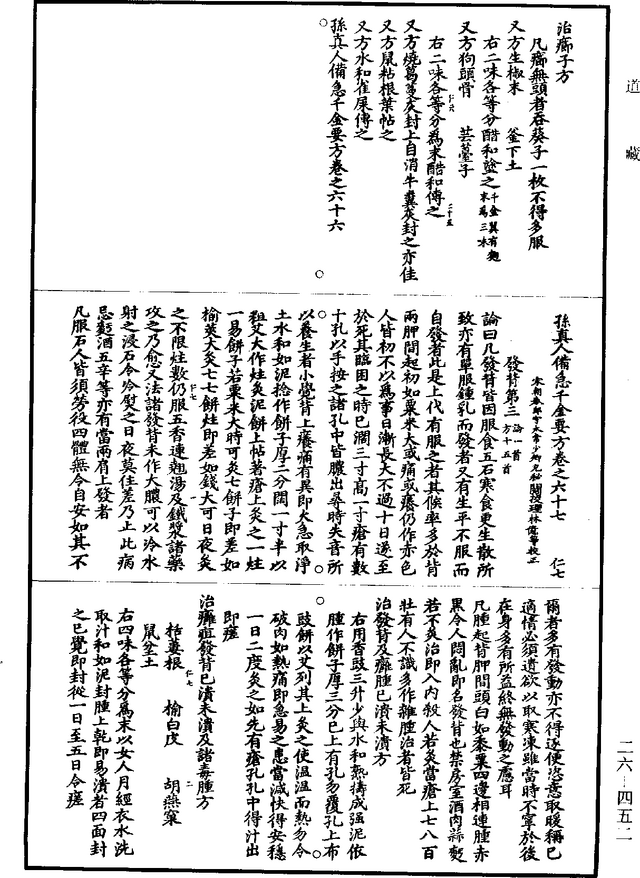 道藏
治癤子方
凡癤無頭者吞葵子一枚不得多服
又方生椒末 釜下土
右二味各等分醋和塗之千金翼有麴末為三味
又方狗頭骨 芸薹子
右二味各等分為末醋和傅之
又方燒葛蔓灰封上自消牛糞灰封之亦佳
又方鼠粘根葉帖之
又方水和雀屎傅之
孫真人備急千金要方卷之六十六
孫真人備急千金要方卷之六十七 仁七
宋朝奉郎守太常少卿充祕閣校理林億等校正
發背第三論一首方十五首
論曰凡發背皆因服食五石寒食更生散所
致亦有單服鍾乳而發者又有生平不服而
自發者此是上代有服之者其候率多於背
兩胛間起初如粟米大或痛或癢仍作赤色
人皆初不以為事日漸長大不過十日遂至
於死其臨困之時已闊三寸高一寸瘡有數
十孔以手按之諸孔中皆膿出尋時失音所
以養生者小覺背上癢痛有異即火急取淨
土水和如泥捻作餅子厚二分闊一寸半以
粗艾大作炷灸泥餅上帖著瘡上灸之一炷
一易餅子若粟米大時可灸七餅子即差如
榆莢大灸七七餅炷即差如錢大可日夜灸
之不限炷數仍服五香連翹湯及鐵漿諸藥
攻之乃愈又法諸發背未作大膿可以冷水
射之浸石令冷熨之日夜莫住差乃止此病
忌麪酒五辛等亦有當兩肩上發者
凡服石人皆須勞役四體無令自安如其不
爾者多有發動亦不得逐便恣意取暖稱已
適情必須遺欲以取寒凍雖當時不寧於後
在身多有所益終無發動之慮耳
凡腫起背胛間頭白如黍粟四邊相連腫赤
黑令人悶亂即名發背也禁房室酒肉蒜麪
若不灸治即入內殺人若灸當瘡上七八百
壯有人不識多作雜腫治者皆死
治發背及癰腫已潰未潰方
右用香豉三升少與水和熟擣成強泥依
腫作餅子厚三分已上有孔勿覆孔上布
豉餅以艾列其上灸之使溫溫而熱勿令
破肉如熱痛即急易之患當減快得安穩
一日二度灸之如先有瘡孔孔中得汁出
即瘥
治癰疽發背已潰未潰及諸毒腫方
栝蔞根 榆白皮 胡燕窠
鼠坌土
右四味各等分為末以女人月經衣水洗
取汁和如泥封腫上乾即易潰者四面封
之已覺即封從一日至五日令瘥
二六－四五二